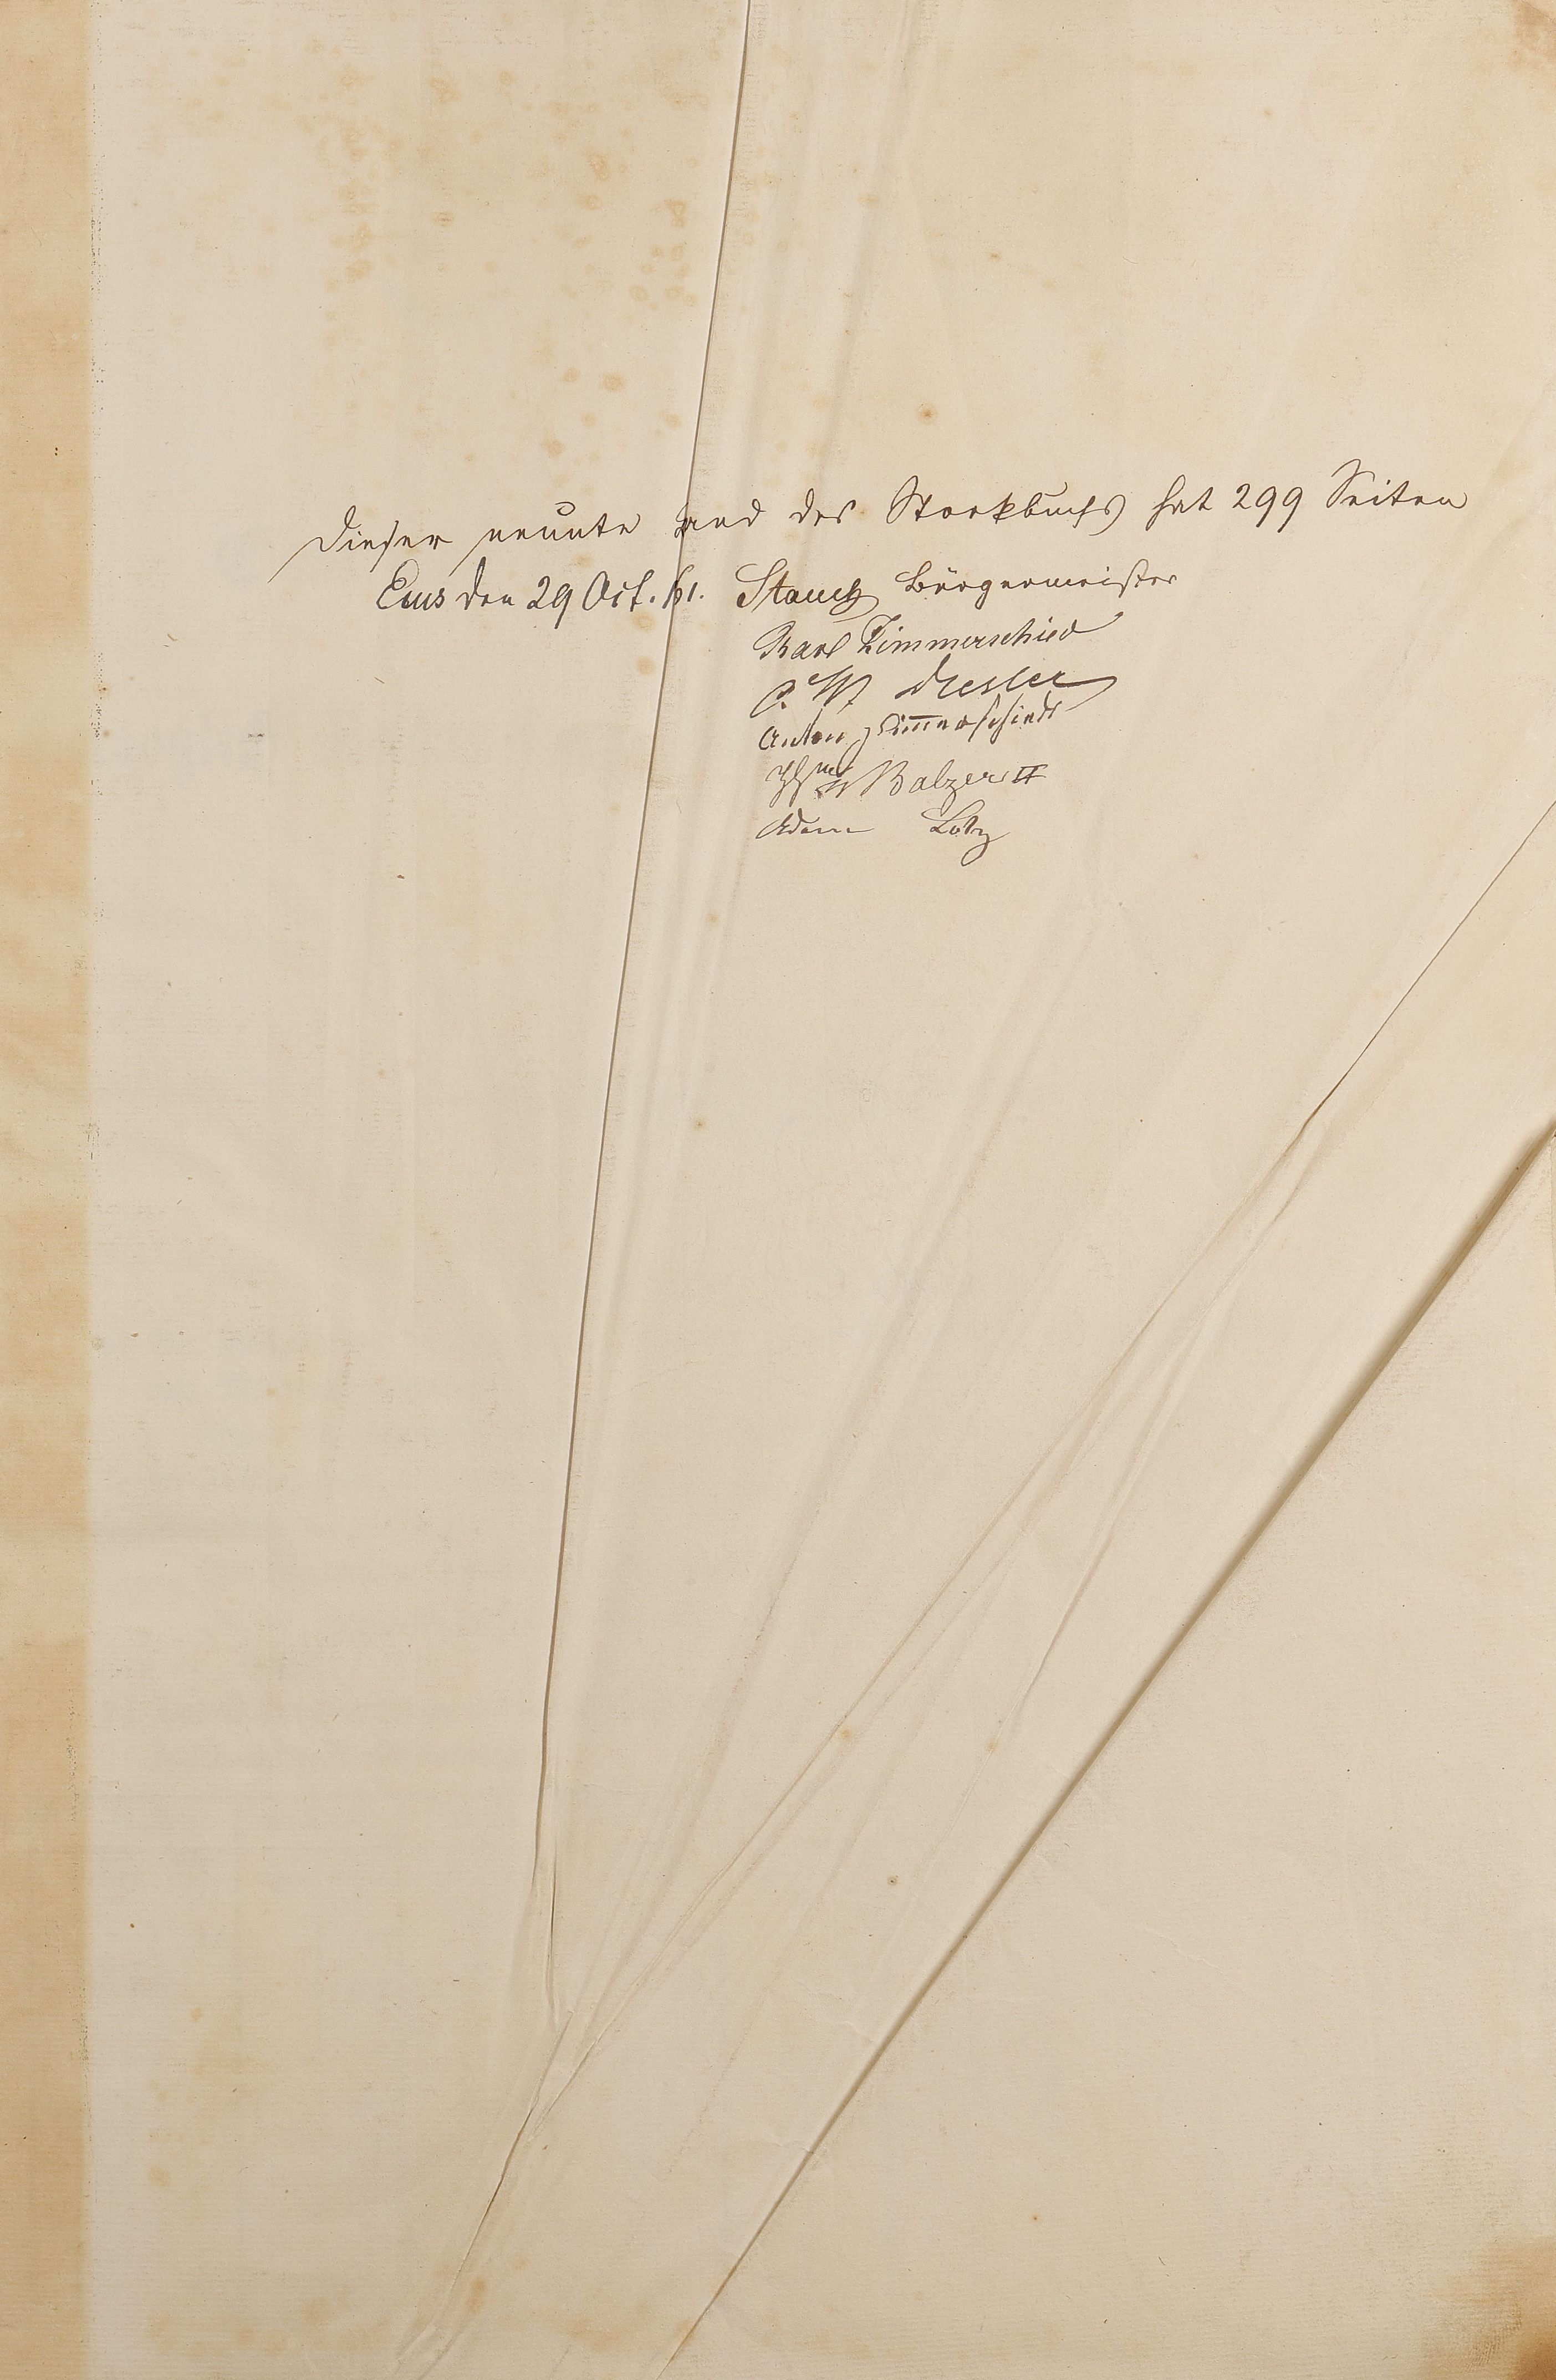 Dieser neunte Band des Stockbuchs hat 299 Seiten
Ems den 29 Oct. 61. Stauch Bürgermeister
Karl Zimmerschied
P. W. Dresler
Anton Zimmerschied
Balzer II
Adam Lotz